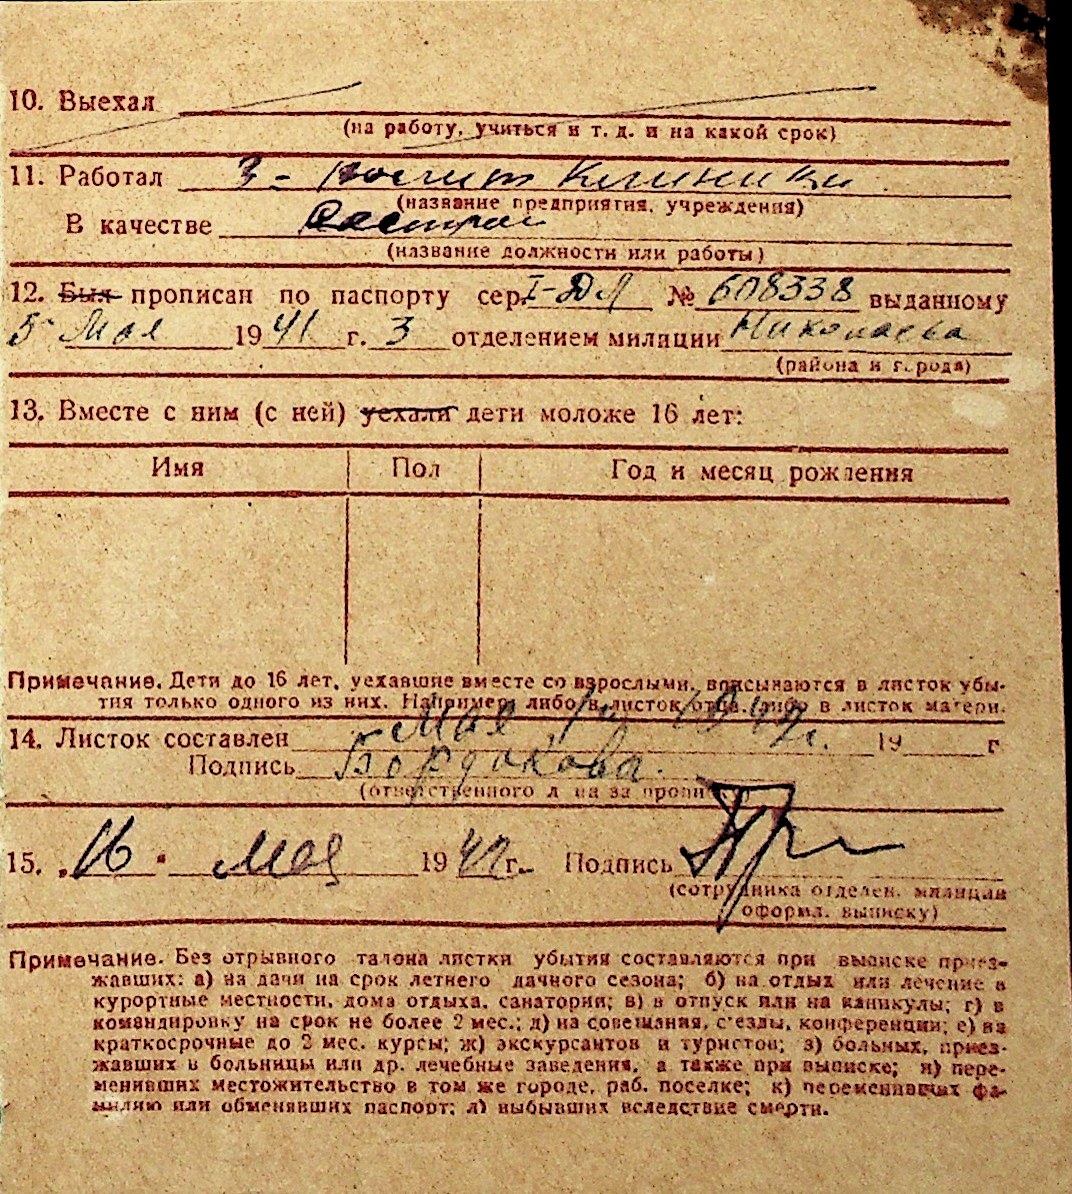 10. Выехал
(на работу, учиться и т. д. и на какой срок)
11. Работал 3 - клиники
(название предприятия, учреждения)
В качестве
(название должности или работы)
12. Был прописан по паспорту сер. I-ДЛ № 608338 выданному
5 Мая 1941 г. 3 отделением милиции Николаева
(района и города)
13. Вместе с ним (с ней) уехали дети моложе 16 лет:
Имя Пол Год и месяц рождения
Примечание. Дети до 16 лет, уехавшие вместе со взрослыми, вписываются в листок убы-
тия только одного из них. Например, либо в листок отца, либо в листок матери.
14. Листок составлен Мая 19 г.
Подпись Бордакова.
(ответственного лица за прописку)
15. „16" Мая 19 г. Подпись
(сотрудника отделен. милиции
оформл. выписку)
Примечание. Без отрывного талона листки убытия составляются при выписке приез-
жавших: а) на дачи на срок летнего дачного сезона; б) на отдых или лечение в
курортные местности, дома отдыха, санатории; в) в отпуск или на каникулы; г) в
командировку на срок не более 2 мес.; д) на совещания, с'езды, конференции; е) на
краткосрочные до 2 мес. курсы; ж) экскурсантов и туристов; з) больных, приез-
жавших в больницы или др. лечебные заведения, а также при выписке; и) пере-
менивших местожительство в том же городе, раб. поселке; к) переменивших фа-
милию или обменявших паспорт; л) выбывших вследствие смерти.